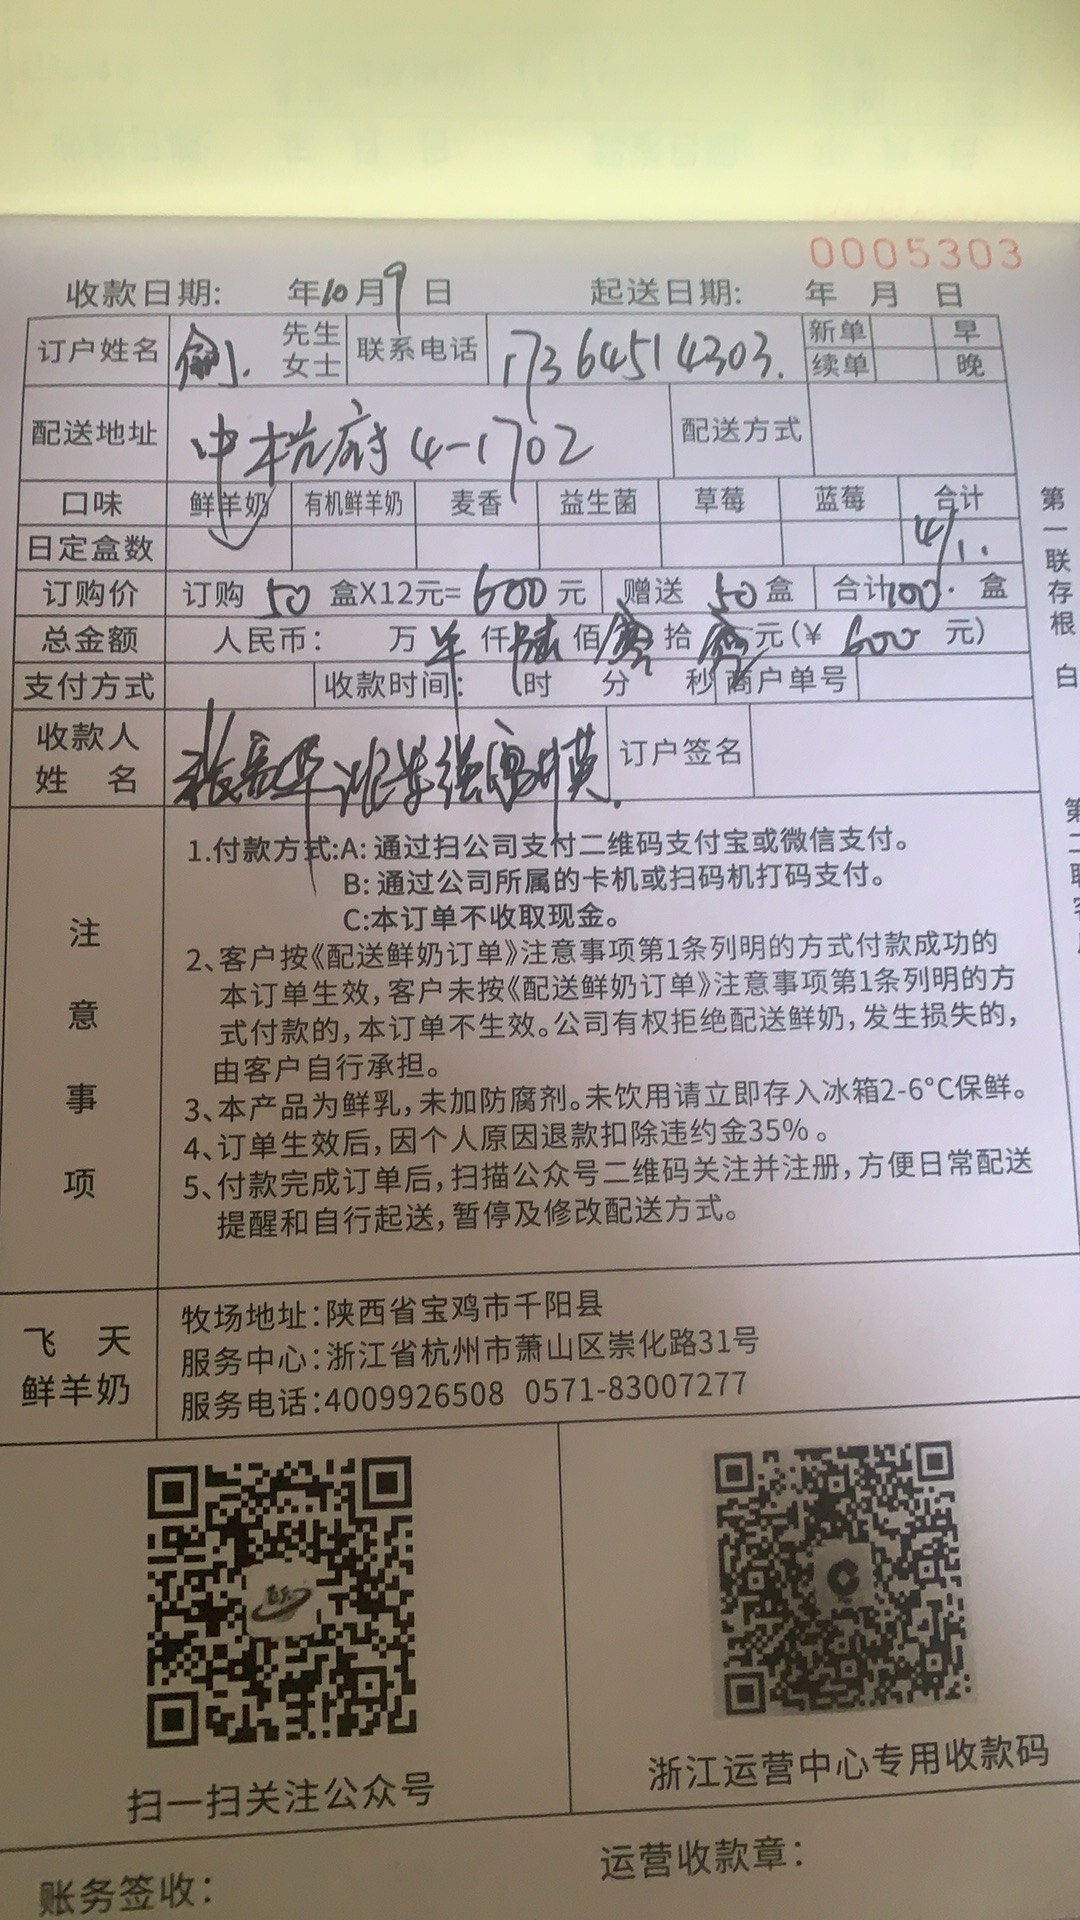 0005303
收款日期: 年10月9日 起送日期: 年 月 日
订户姓名 俞 先生 女士 联系电话 17364514303. 新单 早
续单 晚
配送地址 中杭府4-1702 配送方式
口味 鲜羊奶 有机鲜羊奶 麦香 益生菌 草莓 蓝莓 合计
日定盒数 4/1.
订购价 订购 50 盒X12元=600元 赠送 50 盒 合计100.盒
总金额 人民币: 万 仟陆佰零拾零元(¥ 600 元)
支付方式 收款时间: 时 分 秒 商户单号
收款人
姓 名 订户签名
第一联存根 白
第二联
注意事项
1.付款方式:A: 通过扫公司支付二维码支付宝或微信支付。
B: 通过公司所属的卡机或扫码机打码支付。
C:本订单不收取现金。
2、客户按《配送鲜奶订单》注意事项第1条列明的方式付款成功的
本订单生效,客户未按《配送鲜奶订单》注意事项第1条列明的方
式付款的,本订单不生效。公司有权拒绝配送鲜奶,发生损失的,
由客户自行承担。
3、本产品为鲜乳,未加防腐剂。未饮用请立即存入冰箱2-6°C保鲜。
4、订单生效后,因个人原因退款扣除违约金35%。
5、付款完成订单后,扫描公众号二维码关注并注册,方便日常配送
提醒和自行起送,暂停及修改配送方式。
飞 天
鲜羊奶
牧场地址:陕西省宝鸡市千阳县
服务中心:浙江省杭州市萧山区崇化路31号
服务电话:4009926508 0571-83007277
扫一扫关注公众号
浙江运营中心专用收款码
账务签收:
运营收款章: